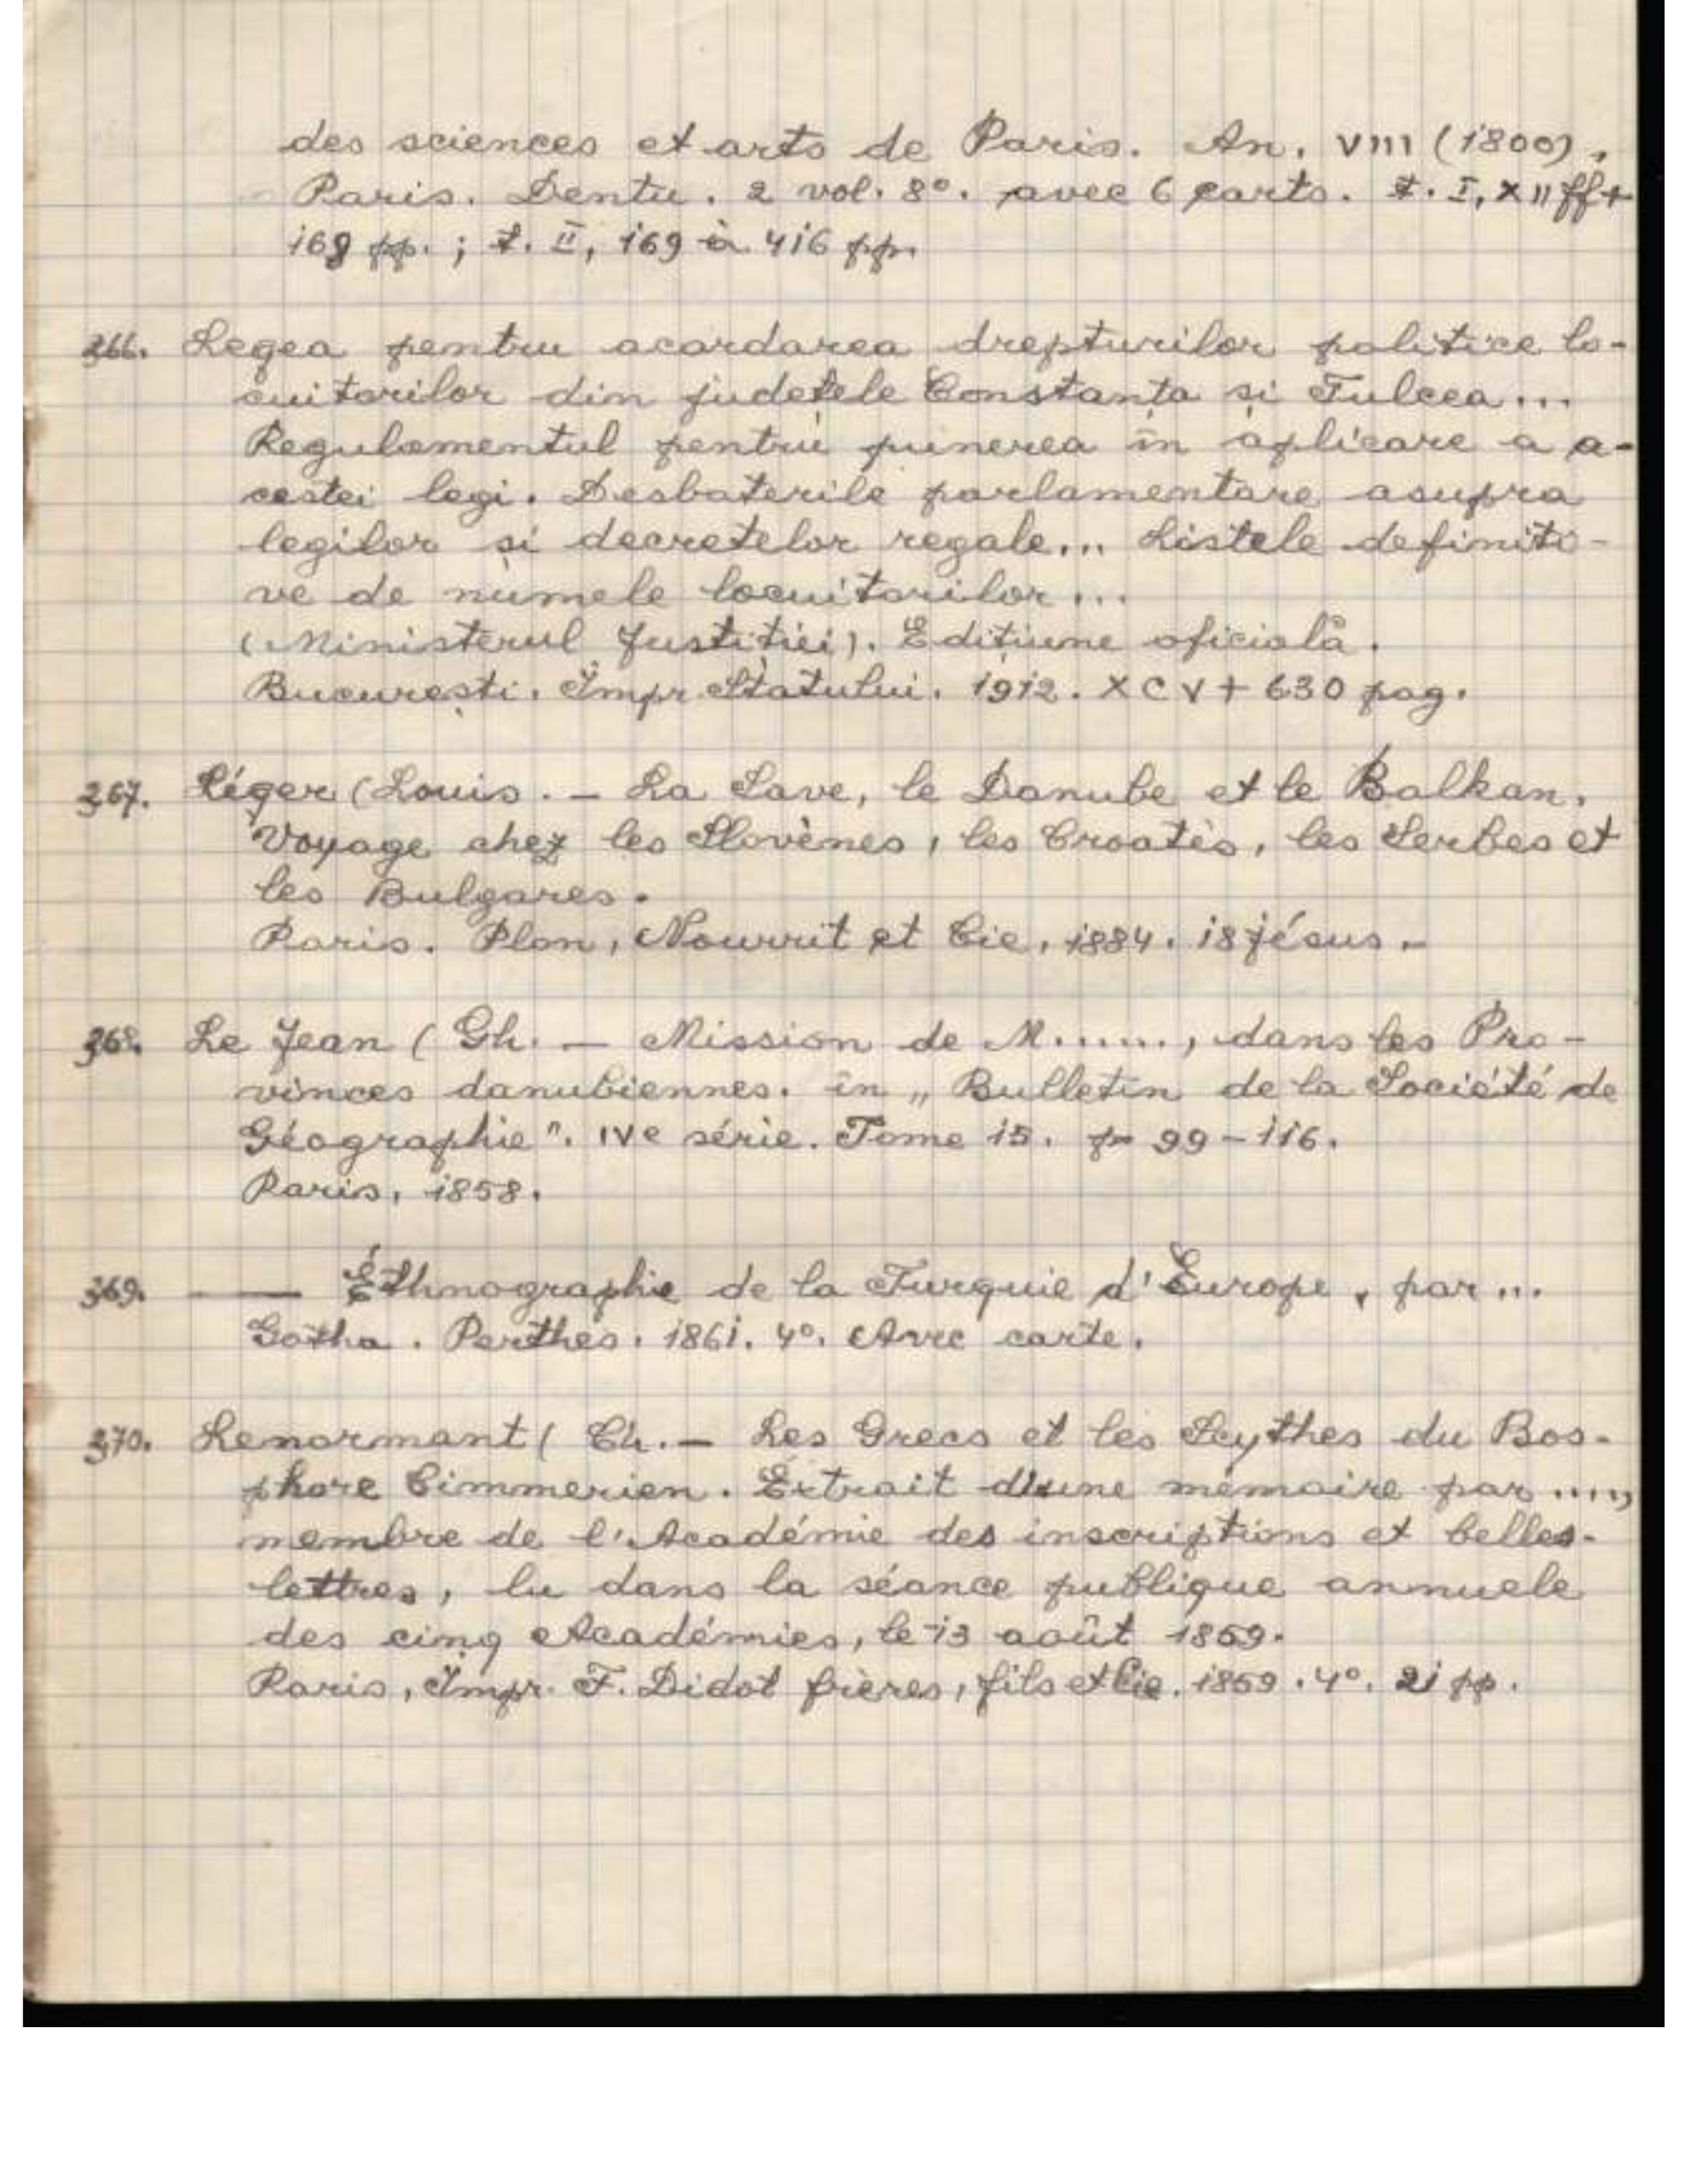 des sciences et arts de Paris. An. VIII (1800),
Paris. Dentu. 2 vol. 8°. avec 6 carts. t. I, XII ff +
168 pp. ; t. II, 169 à 416 pp.
366. Legea pentru acordarea drepturilor politice lo-
cuitorilor din județele Constanța și Tulcea...
Regulamentul pentru punerea în aplicare a a-
cestei legi. Desbaterile parlamentare asupra
legilor și decretelor regale... Listele definiti-
ve de numele locuitorilor...
(Ministerul Justiției). Edițiune oficială.
București. Impr. Statului. 1912. XCV + 630 pag.
367. Léger (Louis. — La Save, le Danube et le Balkan.
Voyage chez les Slovènes, les Croates, les Serbes et
les Bulgares.
Paris. Plon, Nourrit et Cie, 1884. 18 jésus.
368. Le Jean (Gh. — Mission de M......, dans les Pro-
vinces danubiennes. în „Bulletin de la Société de
Géographie". IVe série. Tome 15. p. 99-116.
Paris, 1858.
369. —— Éthnographie de la Turquie d'Europe, par...
Gotha. Perthes. 1861. 4°. Avec carte.
370. Lenormant (Ch. — Les Grecs et les Scythes du Bos-
phore Cimmerien. Extrait d'une mémoire par .....,
membre de l'Académie des inscriptions et belles-
lettres, lu dans la séance publique annuele
des cinq Académies, le 13 août 1859.
Paris, Impr. F. Didot frères, fils et Cie. 1859. 4°. 21 pp.